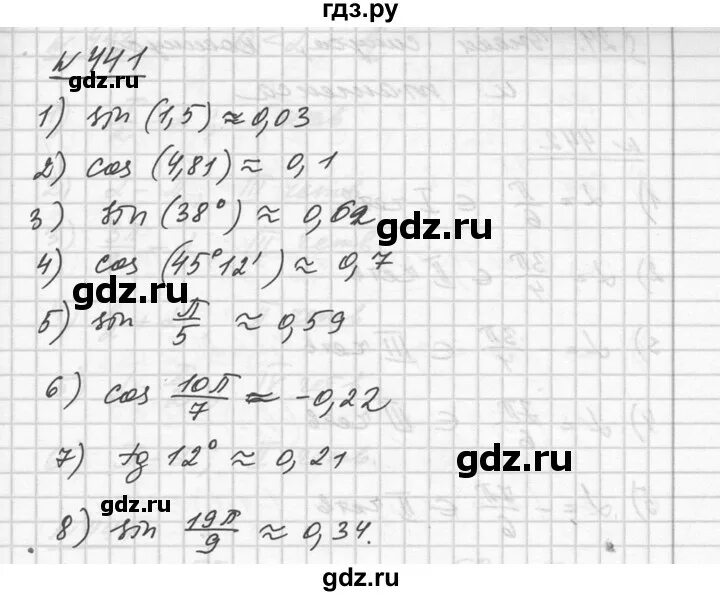 гдз.ру
№ 441
1) sin (1,5) ≈ 0,03
2) cos (4,81) ≈ 0,1
3) sin (38°) ≈ 0,62
gdz.ru
4) cos (45°12') ≈ 0,7
gdz.ru
5) sin π/5 ≈ 0,59
6) cos 10π/7 ≈ -0,22
7) tg 12° ≈ 0,21
gdz.ru
8) sin 19π/9 ≈ 0,34.
gdz.ru